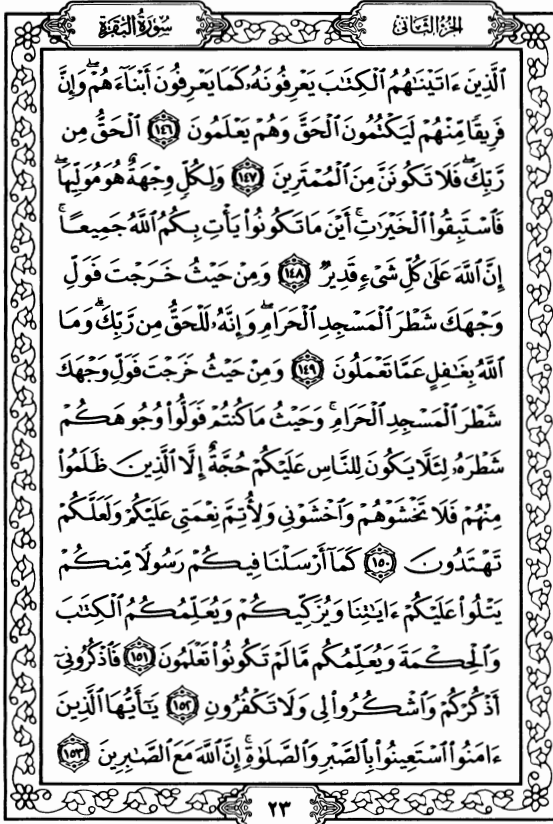 سُورَةُ البَقَرَةِ
الجُزْءُ الثَّانِي
ٱلَّذِينَ ءَاتَيۡنَٰهُمُ ٱلۡكِتَٰبَ يَعۡرِفُونَهُۥ كَمَا يَعۡرِفُونَ أَبۡنَآءَهُمۡۖ وَإِنَّ
فَرِيقٗا مِّنۡهُمۡ لَيَكۡتُمُونَ ٱلۡحَقَّ وَهُمۡ يَعۡلَمُونَ ١٤٦ ٱلۡحَقُّ مِن
رَّبِّكَۖ فَلَا تَكُونَنَّ مِنَ ٱلۡمُمۡتَرِينَ ١٤٧ وَلِكُلّٖ وِجۡهَةٌ هُوَ مُوَلِّيهَاۖ
فَٱسۡتَبِقُواْ ٱلۡخَيۡرَٰتِۚ أَيۡنَ مَا تَكُونُواْ يَأۡتِ بِكُمُ ٱللَّهُ جَمِيعًاۚ
إِنَّ ٱللَّهَ عَلَىٰ كُلِّ شَيۡءٖ قَدِيرٞ ١٤٨ وَمِنۡ حَيۡثُ خَرَجۡتَ فَوَلِّ
وَجۡهَكَ شَطۡرَ ٱلۡمَسۡجِدِ ٱلۡحَرَامِۖ وَإِنَّهُۥ لَلۡحَقُّ مِن رَّبِّكَۗ وَمَا
ٱللَّهُ بِغَٰفِلٍ عَمَّا تَعۡمَلُونَ ١٤٩ وَمِنۡ حَيۡثُ خَرَجۡتَ فَوَلِّ وَجۡهَكَ
شَطۡرَ ٱلۡمَسۡجِدِ ٱلۡحَرَامِۚ وَحَيۡثُ مَا كُنتُمۡ فَوَلُّواْ وُجُوهَكُمۡ
شَطۡرَهُۥ لِئَلَّا يَكُونَ لِلنَّاسِ عَلَيۡكُمۡ حُجَّةٌ إِلَّا ٱلَّذِينَ ظَلَمُواْ
مِنۡهُمۡ فَلَا تَخۡشَوۡهُمۡ وَٱخۡشَوۡنِي وَلِأُتِمَّ نِعۡمَتِي عَلَيۡكُمۡ وَلَعَلَّكُمۡ
تَهۡتَدُونَ ١٥٠ كَمَآ أَرۡسَلۡنَا فِيكُمۡ رَسُولٗا مِّنكُمۡ
يَتۡلُواْ عَلَيۡكُمۡ ءَايَٰتِنَا وَيُزَكِّيكُمۡ وَيُعَلِّمُكُمُ ٱلۡكِتَٰبَ
وَٱلۡحِكۡمَةَ وَيُعَلِّمُكُم مَّا لَمۡ تَكُونُواْ تَعۡلَمُونَ ١٥١ فَٱذۡكُرُونِيٓ
أَذۡكُرۡكُمۡ وَٱشۡكُرُواْ لِي وَلَا تَكۡفُرُونِ ١٥٢ يَٰٓأَيُّهَا ٱلَّذِينَ
ءَامَنُواْ ٱسۡتَعِينُواْ بِٱلصَّبۡرِ وَٱلصَّلَوٰةِۚ إِنَّ ٱللَّهَ مَعَ ٱلصَّٰبِرِينَ ١٥٣
٢٣